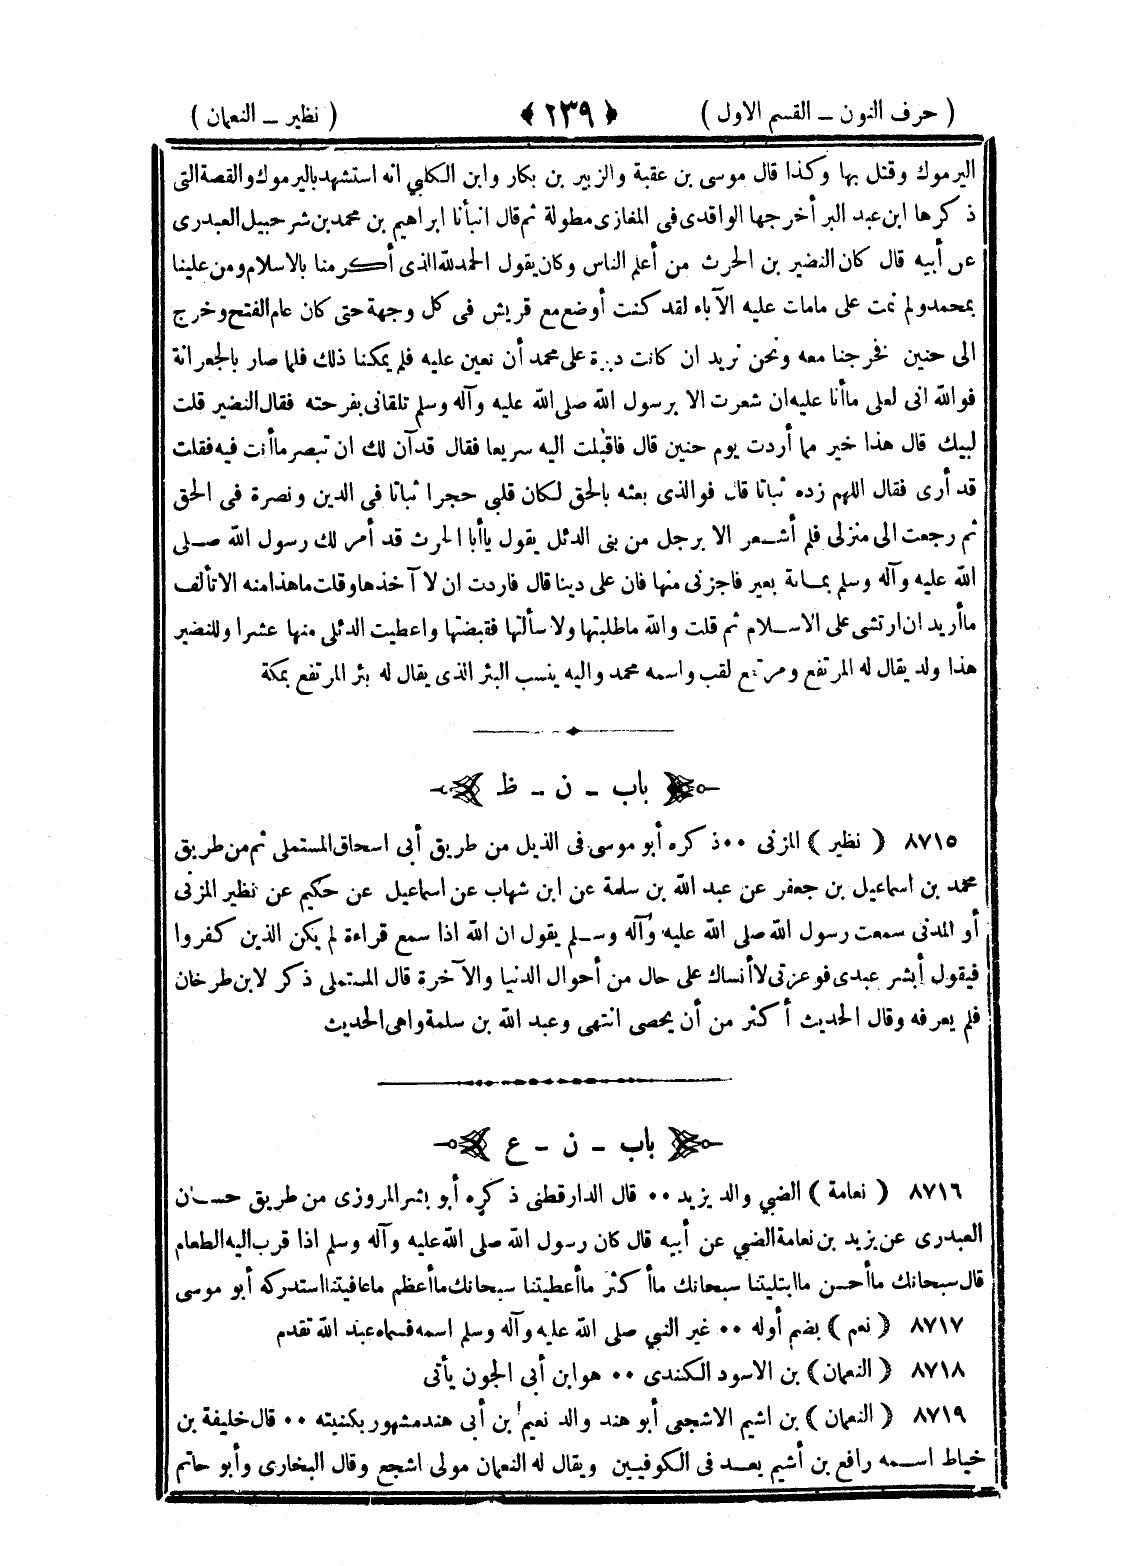 ( حرف النون ـ القسم الاول ) ﴿ ٢٣٩ ﴾ ( نظير ـ النعمان )
اليرموك وقتل بها وكذا قال موسى بن عقبة والزبير بن بكار وابن الكلبي انه استشهد باليرموك والقصة التى
ذكرها ابن عبد البر أخرجها الواقدى فى المغازى مطولة ثم قال انبأنا ابراهيم بن محمد بن شرحبيل العبدرى
عن أبيه قال كان النضير بن الحرث من أعلم الناس وكان يقول الحمد لله الذى أكرمنا بالاسلام ومن علينا
بمحمد ولم نمت على مامات عليه الآباء لقد كنت أوضع مع قريش فى كل وجهة حتى كان عام الفتح وخرج
الى حنين فخرجنا معه ونحن نريد ان كانت دبرة على محمد أن نعين عليه فلم يمكنا ذلك فلما صار بالجعرانة
فوالله انى لعلى ماأنا عليه ان شعرت الا برسول الله صلى الله عليه وآله وسلم تلقانى بفرحته فقال النضير قلت
لبيك قال هذا خير مما أردت يوم حنين قال فاقبلت اليه سريعا فقال قد آن لك ان تبصر ماأنت فيه فقلت
قد أرى فقال اللهم زده ثباتا قال فوالذى بعثه بالحق لكان قلبي حجرا ثباتا فى الدين ونصرة فى الحق
ثم رجعت الى منزلى فلم أشعر الا برجل من بنى الدئل يقول ياأبا الحرث قد أمر لك رسول الله صلى
الله عليه وآله وسلم بمائة بعير فاجزنى منها فان على دينا قال فاردت ان لا آخذها وقلت ماهذا منه الا تألف
ماأريد ان ارتشى على الاسلام ثم قلت والله ماطلبتها ولا سألتها فقبضتها واعطيت الدئلى منها عشرا وللنضير
هذا ولد يقال له المرتفع ومرتفع لقب واسمه محمد واليه ينسب البئر الذى يقال له بئر المرتفع بمكة
باب ـ ن ـ ظ
٨٧١٥ ( نظير ) المزنى ٠٠ ذكره أبو موسى فى الذيل من طريق أبى اسحاق المستملى ثم من طريق
محمد بن اسماعيل بن جعفر عن عبد الله بن سلمة عن ابن شهاب عن اسماعيل عن حكيم عن نظير المزنى
أو المدنى سمعت رسول الله صلى الله عليه وآله وسلم يقول ان الله اذا سمع قراءة لم يكن الذين كفروا
فيقول أبشر عبدى فوعزتى لاأنساك على حال من أحوال الدنيا والآخرة قال المستملى ذكر لابن طرخان
فلم يعرفه وقال الحديث أكثر من أن يحصى انتهى وعبد الله بن سلمة واهى الحديث
باب ـ ن ـ ع
٨٧١٦ ( نعامة ) الضبي والد يزيد ٠٠ قال الدارقطنى ذكره أبو بشر المروزى من طريق حسان
العبدرى عن يزيد بن نعامة الضبي عن أبيه قال كان رسول الله صلى الله عليه وآله وسلم اذا قرب اليه الطعام
قال سبحانك ماأحسن ماابتليتنا سبحانك ماأكثر ماأعطيتنا سبحانك ماأعظم ماعافيتنا استدركه أبو موسى
٨٧١٧ ( نعم ) بضم أوله ٠٠ غير النبي صلى الله عليه وآله وسلم اسمه فسماه عبد الله تقدم
٨٧١٨ ( النعمان ) بن الاسود الكندى ٠٠ هو ابن أبى الجون يأتى
٨٧١٩ ( النعمان ) بن اشيم الاشجعى أبو هند والد نعيم بن أبى هند مشهور بكنيته ٠٠ قال خليفة بن
خياط اسمه رافع بن أشيم يعد فى الكوفيين ويقال له النعمان مولى اشجع وقال البخارى وأبو حاتم